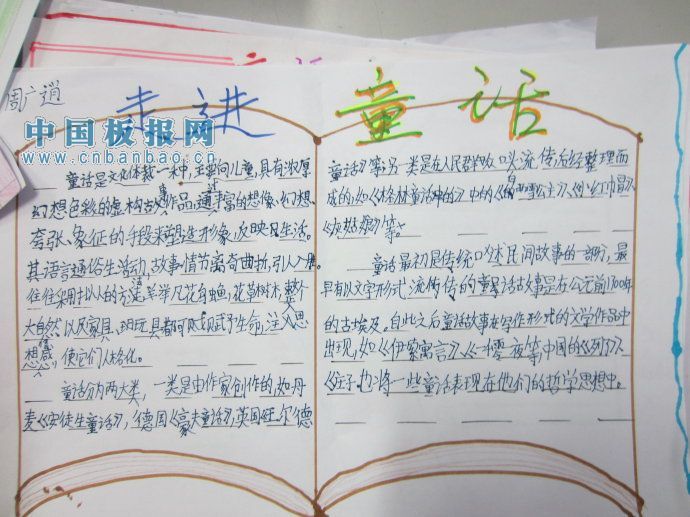 周广道
走进童话
中国板报网
www.cnbanbao.cn
童话是文化体裁一种,主要向儿童,具有浓厚
幻想色彩的虚构故事作品,通过丰富的想像、幻想、
夸张、象征的手段来塑造形象,反映生活。
其语言通俗生活动,故事情节离奇曲折,引人入胜。
往往采用拟人的方法,举凡花鸟虫鱼,花草树木,整个
大自然以及家具、玩具都可赋予生命,注入思
想感,使它们人格化。
童话分为两大类,一类是由作家创作的,如丹
麦《安徒生童话》,德国《豪夫童话》,英国旺尔德
童话》等;另一类是在人民群众口头流传后经整理而
成的,如《格林童话》中的《白雪公主》、《小红帽》、
《灰姑娘》等。
童话最初是传统口述民间故事的一部分,最
早有以文字形式流传的童话故事是在公元前1700年
的古埃及。自此之后童话故事在写作形成的文学作品中
出现,如《伊索寓言》《一千零一夜》等中国的《列子》、
《庄子》也将一些童话表现在他们的哲学思想中。